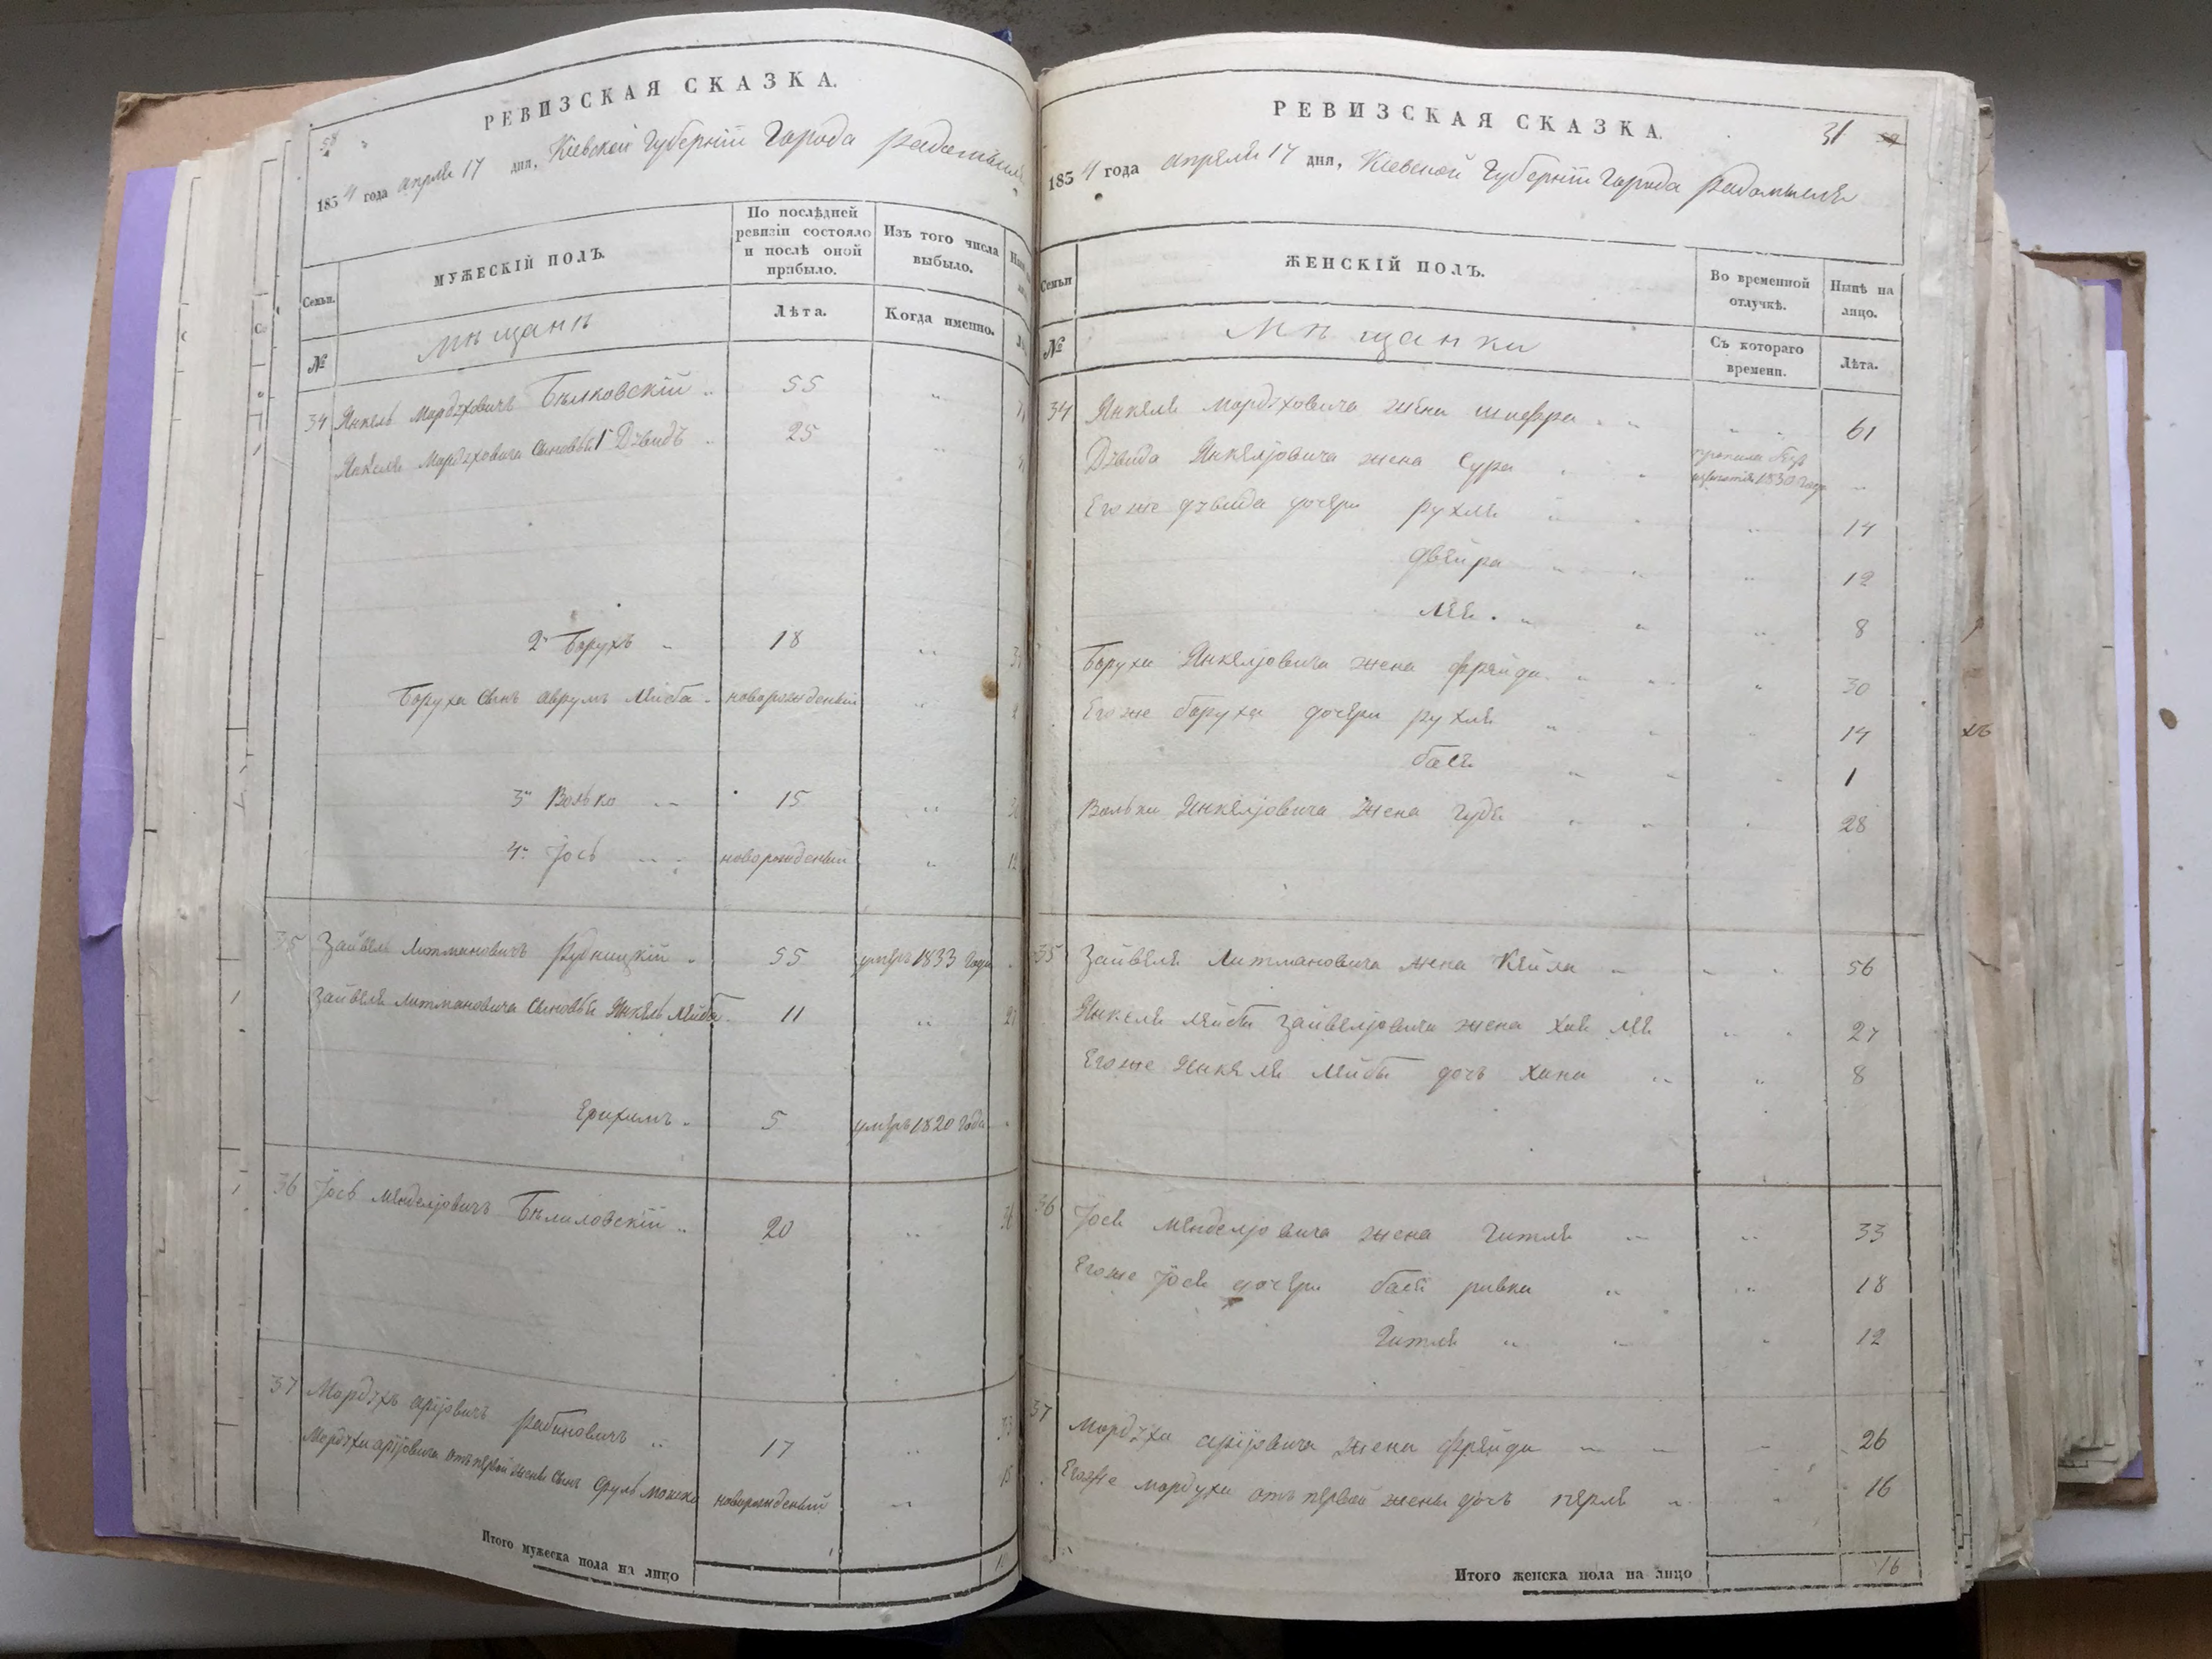 РЕВИЗСКАЯ СКАЗКА.
1834 года апреля 17 дня, Кіевской Губерніи Города Радомысля
Семьи.
МУЖЕСКІЙ ПОЛЪ.
По послѣдней ревизіи состояло и послѣ оной прибыло.
Изъ того числа выбыло.
№
Мѣщанѣ
Лѣта.
Когда именно.
34 Янкель Мордуховичъ Бѣлковскій 55
Янкеля Мордуховича сыновья 1й Дувидъ 25
2й Борухъ 18
Боруха сынъ Аврумъ Лейба новорожденый
3й Волько 15
4й Іось новорожденый
35 Зайвель Литмановичъ Рудницкій 55 умеръ 1833 года
Зайвеля Литмановича сыновья Янкель Лейба 11
Ерухимъ 5 умеръ 1820 года
36 Іось Менделіовичъ Бѣлиловскій 20
37 Мордухъ Аріовичъ Рабиновичъ 17
Мордухи Аріовича отъ первой жены сынъ Сруль Мошко новорожденый
Итого мужеска пола на лицо
РЕВИЗСКАЯ СКАЗКА.
31
1834 года апреля 17 дня, Кіевской Губерніи Города Радомысля
Семьи
ЖЕНСКІЙ ПОЛЪ.
Во временной отлучкѣ.
Нынѣ на лицо.
№
Мѣщанки
Съ котораго времени.
Лѣта.
34 Янкеля Мордуховича жена Шифра 61
Дувида Янкеліовича жена Сура пропала безъ
известія 1830 года
Егоже Дувида дочери Рухля 14
Двейра 12
Лея 8
Боруха Янкеліовича жена Фрейда 30
Егоже Боруха дочери Рухля 14
Бася 1
Вольки Янкеліовича жена Гудя 28
35 Зайвеля Литмановича жена Кейла 56
Янкеля Лейбы Зайвеліовича жена Хая Лея 27
Егоже Янкеля Лейбы дочь Хана 8
36 Іося Менделіовича жена Гитля 33
Егоже Іося дочери Бася Ривка 18
Гитля 12
37 Мордухи Аріовича жена Фрейда 26
Егоже Мордухи отъ первой жены дочь Перля 16
Итого женска пола на лицо 16